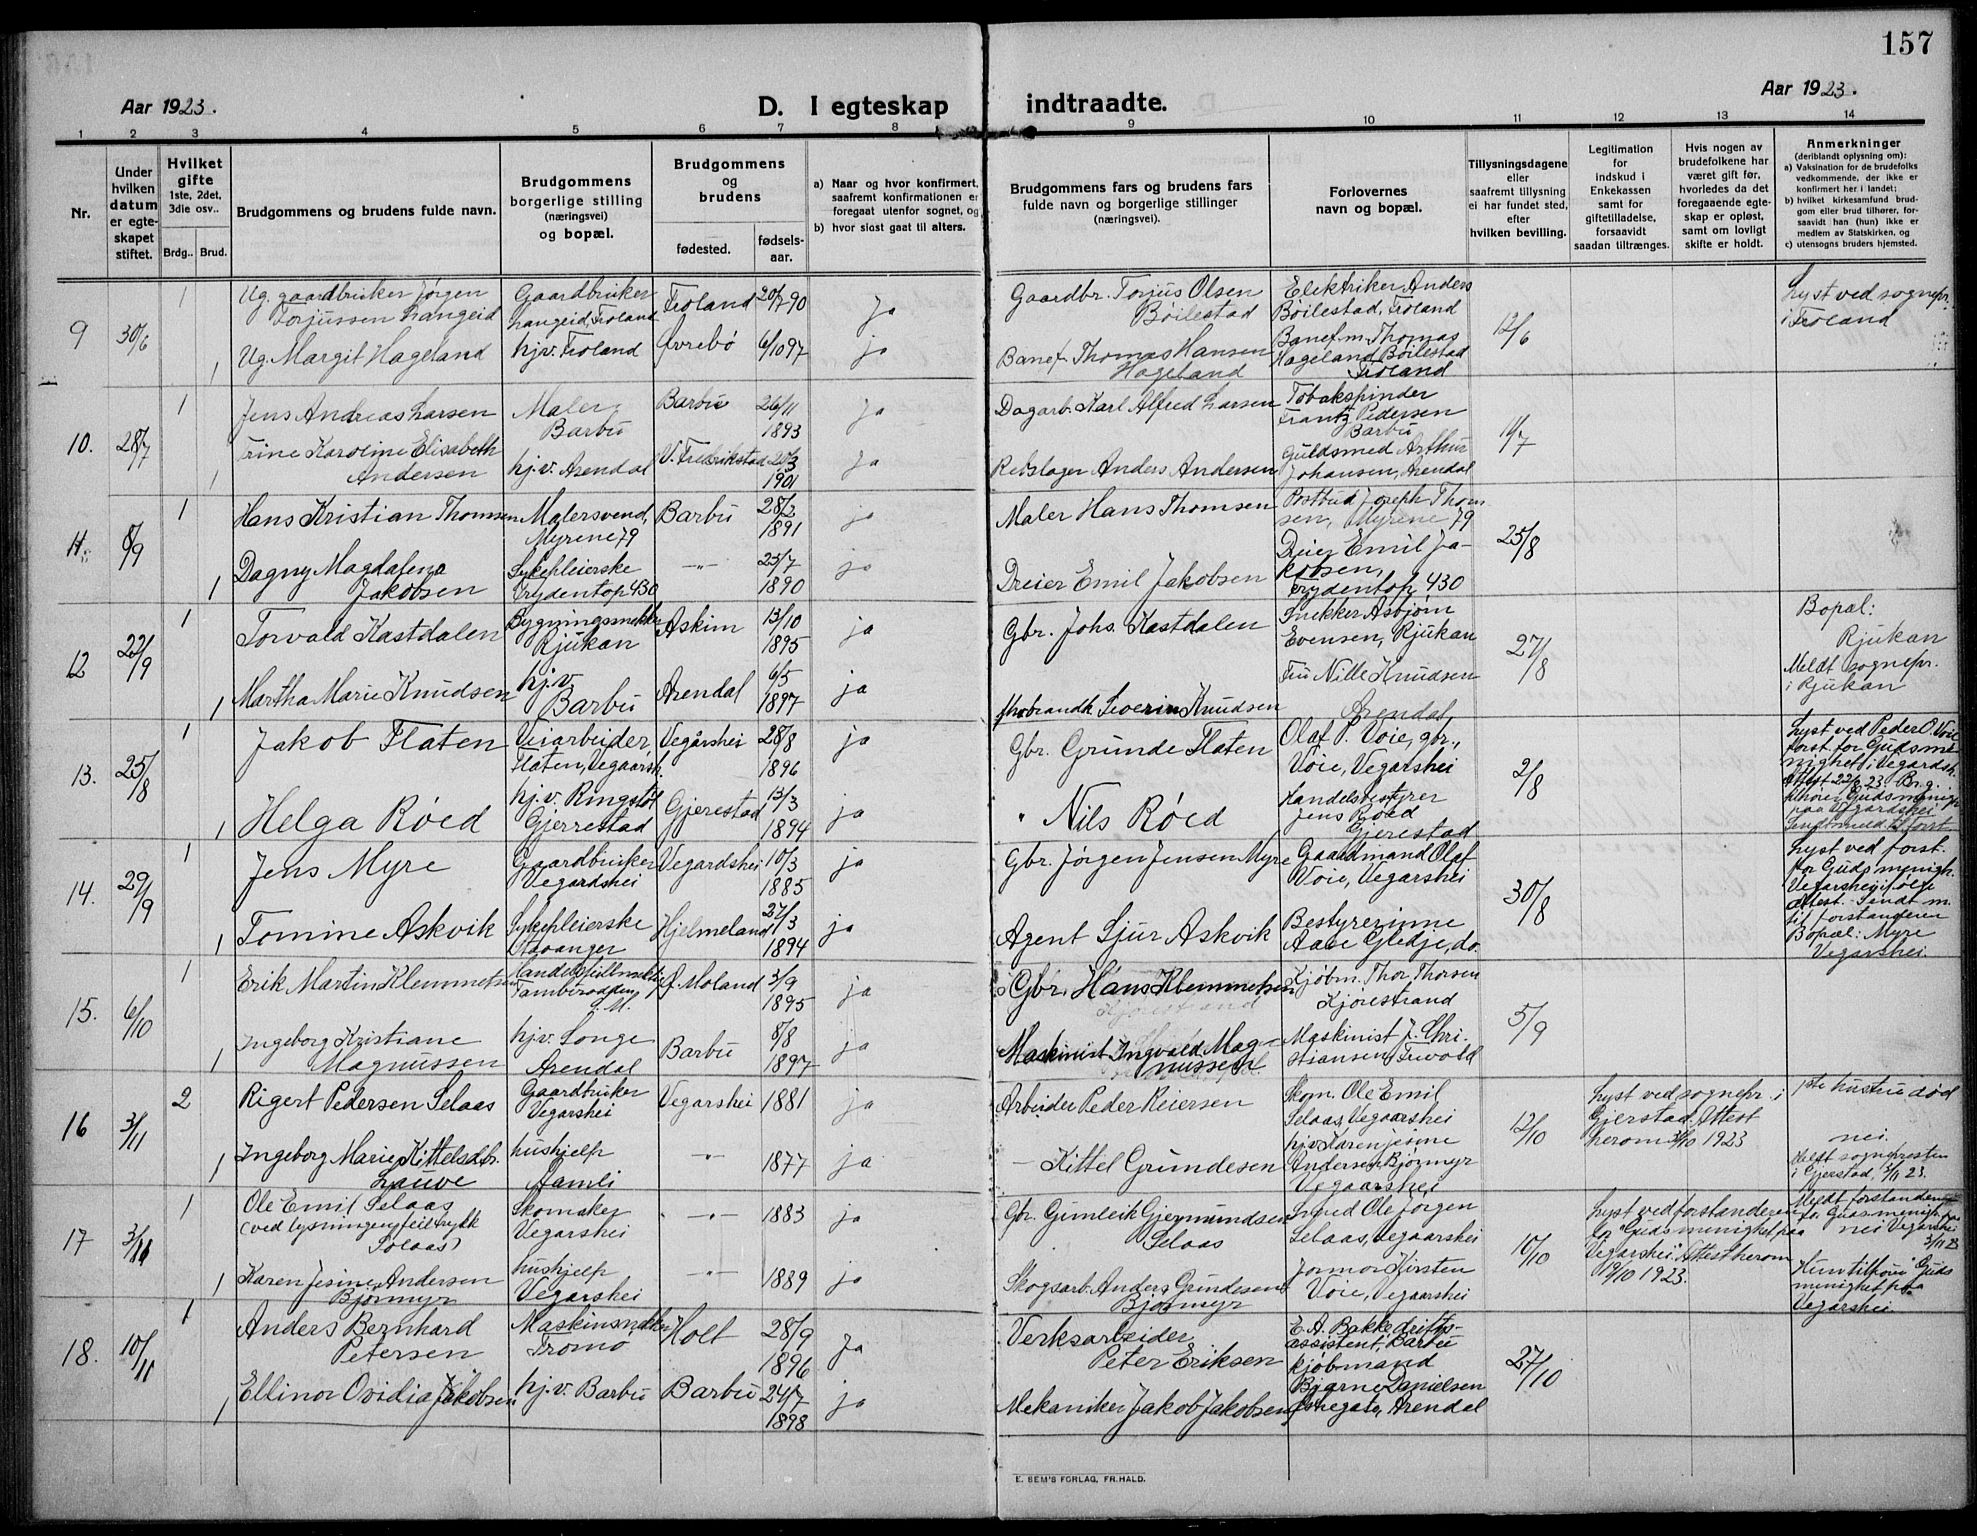 157
Aar 1923.
D. I egteskap indtraadte.
Aar 1923.
1 2 3 4 5 6 7 8 9 10 11 12 13 14
Nr.
Under hvilken datum er egteskapet stiftet.
Hvilket gifte 1ste, 2det, 3die osv..
Brdg.. Brud.
Brudgommens og brudens fulde navn.
Brudgommens borgerlige stilling (næringsvei) og bopæl.
Brudgommens og brudens
fødested. fødselsaar.
a) Naar og hvor konfirmert, saafremt konfirmationen er foregaat utenfor sognet, og
b) hvor sidst gaat til alters.
Brudgommens fars og brudens fars fulde navn og borgerlige stillinger (næringsvei).
Forlovernes navn og bopæl.
Tillysningsdagene eller saafremt tillysning ei har fundet sted, efter hvilken bevilling.
Legitimation for indskud i Enkekassen samt for giftetilladelse, forsaavidt saadan tiltrænges.
Hvis nogen av brudefolkene har været gift før, hvorledes da det foregaaende egteskap er opløst, samt om lovligt skifte er holdt.
Anmerkninger (deriblandt oplysning om):
a) Vaksination for de brudefolks vedkommende, der ikke er konfirmert her i landet;
b) hvilket kirkesamfund brudgom eller brud tilhører, forsaavidt han (hun) ikke er medlem av Statskirken, og
c) utensogns bruders hjemsted.
9 30/6 1 Ug. gaardbruker Jørgen Torjussen Langeid Gaardbruker Langeid, Froland Froland 20/7 90 Ja Gaardbr. Torjus Olsen Bøilestad Elektriker Anders Bøilestad, Froland 12/6 Lyst ved sognepr. i Froland
1 Ug. Margit Hageland hjv. Froland Øvrebø 6/10 97 ja Banef. Thomas Hansen Hageland Banef.m. Thomas Hageland Bøilestad Froland
10. 28/7 1 Jens Andreas Larsen Maler Barbu Barbu 26/11 1893 Ja Dagarb. Karl Alfred Larsen Tobakspinder Frantz Pedersen Barbu
1 Trine Karoline Elisabeth Andersen hj.v. Arendal V. Fredrikstad 1901 Ja Rebslager Anders Andersen Guldsmed Arthur Johansen, Arendal
11. 8/9 1 Hans Kristian Thomsen Malersvend, Myrene 79 Barbu 28/2 1891 ja Maler Hans Thomsen Postbud Joseph Thomsen, Myrene 79 25/8
1 Dagny Magdalena Jakobsen Sykepleierske Frydentop 430 —"— 25/7 1890 ja Dreier Emil Jakobsen Dreier Emil Jakobsen, Frydentop 430
12 22/9 1 Torvald Kastdalen Rjukan Askim 13/10 1895 ja Gbr. Johs. Kastdalen Snekker Asbjørn Evensen, Rjukan 27/8 Bopæl: Rjukan
1 Martha Marie Knudsen hj.v. Barbu Arendal 6/5 1897 ja Severin Knudsen Fru Nille Knudsen Arendal Meldt sognepr. i Rjukan
13. 25/8 1 Jakob Flaten Veiarbeider, Flaten, Vegaarsh. Vegårshei 28/8 1896 ja Gbr. Grunde Flaten Olaf P. Voie, gbr., Voie, Vegarshei 2/8 Lyst ved Peder O. Voie forst. for Gudsmenighet i Vegardsh.
1 Helga Røed hj.v. Gjerrestad Gjerestad 13/3 1894 ja " Nils Røed Handelsbestyrer Jens Røed Gjerestad
14. 29/9 1 Jens Myre Gaardbruker Vegardshei Vegardshei 10/3 1885 ja Gbr. Jørgen Jensen Myre Gaardmand Olaf Voie, Vegarshei 30/8 Lyst ved forst. for Gudsmenigh. Vegarshei ifølge attest. Sendt m. til forstanderen
1 Tomine Askvik Sykepleierske Stavanger Hjelmeland 27/3 1894 ja Agent Sjur Askvik Bestyrerinne Aase Gledje, do. Bopæl: Myre Vegarshei.
15. 6/10 1 Erik Martin Klemmetsen Ø. Moland 3/9 1895 ja Gbr. Hans Klemmetsen Kjøbm. Thor Thorsen Kjørestrand 5/9
1 Ingeborg Kristiane Magnussen hjv. Songe Arendal Barbu 8/8 1897 ja Maskinist Ingvald Magnussen Maskinist J. Christiansen,
16 3/11 2 Rigert Pedersen Selaas Gaardbruker Vegarshei Vegarshei 1881 ja Arbeider Peder Reiersen Skom. Ole Emil Selaas, Vegaarshei 12/10 Lyst ved sognepr. i Gjerstad, Attest herom 31/10 1923 1ste hustru død
1 Ingeborg Marie Kittelsdtr. Lauve hushjelp Aamli —"— 1877 ja — Kittel Grundesen hjv. Karen Jesine Andersen Bjørmyr Vegaarshei nei. Meldt sognepresten i Gjerstad, 3/11 23.
17 3/11 1 Ole Emil Selaas (ved lysningen feiltrykk Solaas) Skomaker Vegarshei —"— 1883 ja Gbr. Gunleik Gjermundsen Selaas Smed Ole Jørgen Selaas, Vegaarshei 10/10 Lyst ved forstanderen for "Guds menighet paa Vegarshei", Attest herom 19/10 1923. Meldt forstanderen for Guds menigh. paa Vegarshei 3/11 23 nei
1 Karen Jesine Andersen Bjørmyr hushjelp Vegarshei —"— 1889 ja Skogsarb. Anders Grundesen Bjørmyr Jormor Kirsten Voie, Vegaarshei Hun tilhører "Guds menighet paa Vegarshei
18. 10/11 1 Anders Bernhard Petersen Tromø Holt 28/9 1896 Ja Verksarbeider Peter Eriksen E. A. Bakke driftsassistent, Barbu 27/10
1 Ellinor Ovidia Jakobsen hj.v. Barbu Barbu 24/7 1898 ja Mekaniker Jakob Jakobsen kjøbmand Bjarne Danielsen Østregate, Arendal
E. SEM'S FORLAG, FR.HALD.